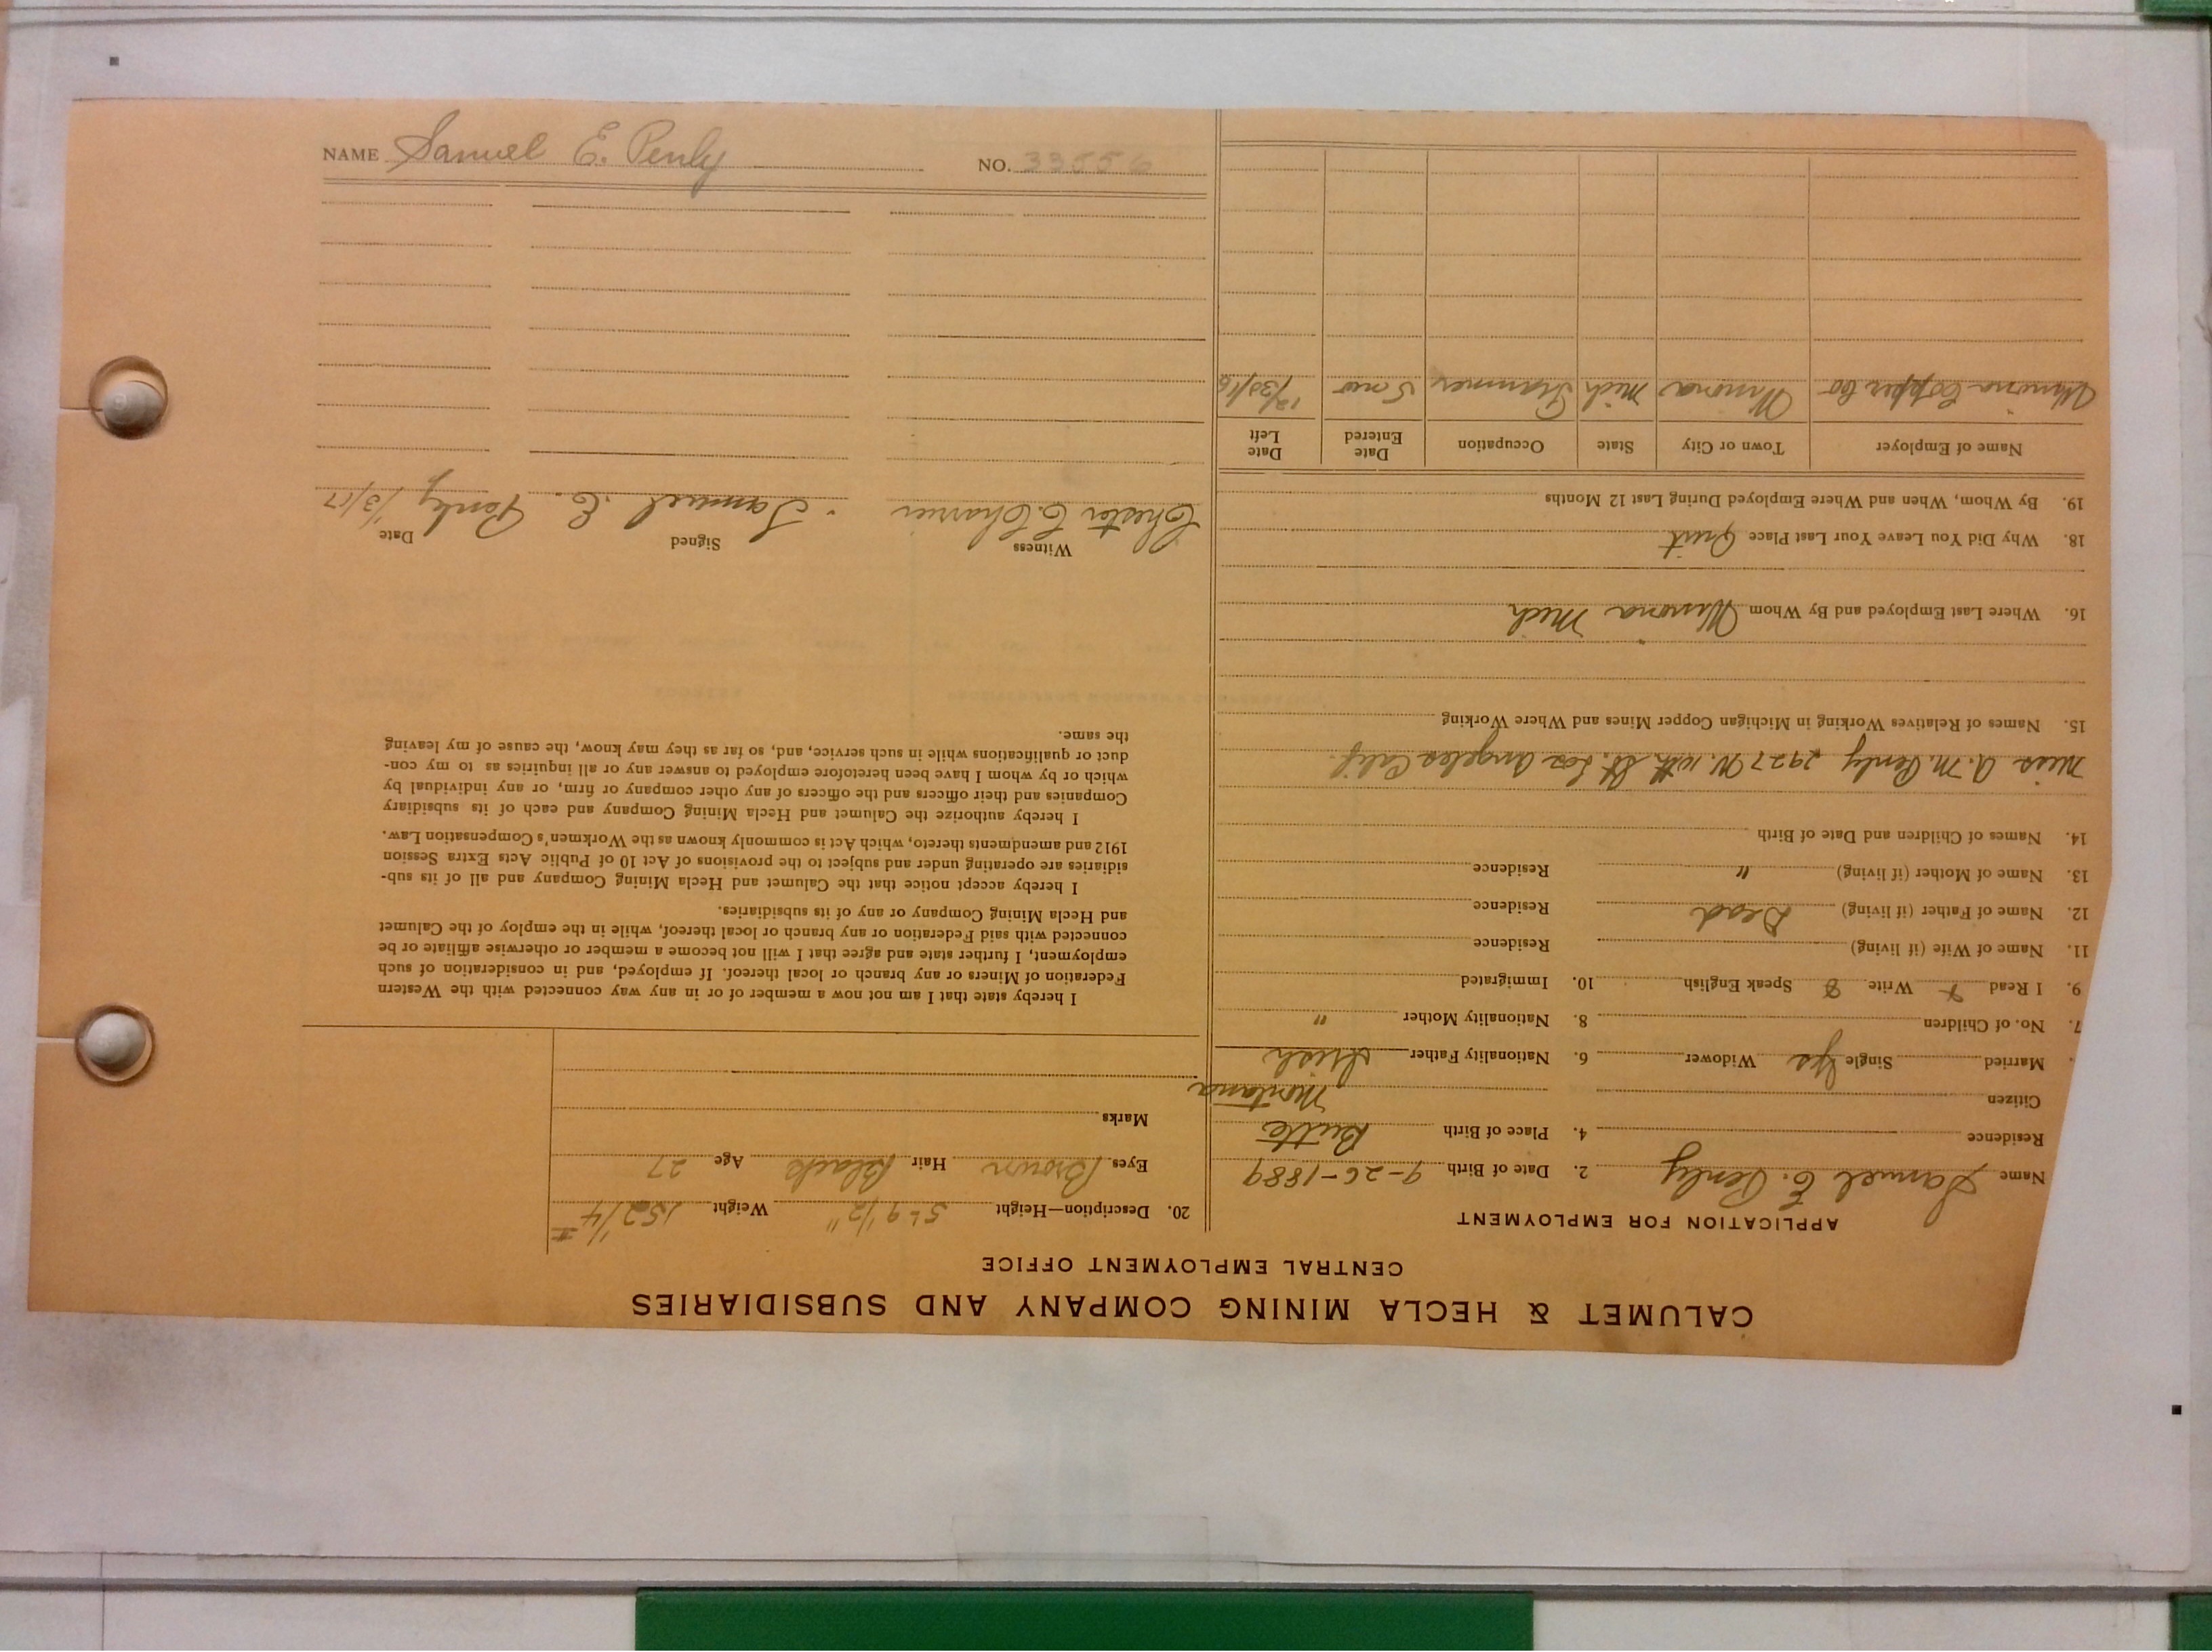 NAME Samuel E. Penly NO. 33556
CALUMET & HECLA MINING COMPANY AND SUBSIDIARIES
CENTRAL EMPLOYMENT OFFICE
APPLICATION FOR EMPLOYMENT
Name Samuel E. Penly 2. Date of Birth 9-26-1889
Residence 4. Place of Birth Butte
Citizen Montana
Married Single Yes Widower 6. Nationality Father Irish
7. No. of Children 8. Nationality Mother "
9. I Read Write Speak English 10. Immigrated
11. Name of Wife (if living) Residence
12. Name of Father (if living) Dead Residence
13. Name of Mother (if living) " Residence
14. Names of Children and Date of Birth
Miss A. M. Penly 2927 W. 10th St. Los Angeles Calif.
15. Names of Relatives Working in Michigan Copper Mines and Where Working
16. Where Last Employed and By Whom Winona Mich
18. Why Did You Leave Your Last Place Quit
19. By Whom, When and Where Employed During Last 12 Months
Name of Employer Town or City State Occupation Date Entered Date Left
Winona Copper Co Winona Mich Trammer 5 mo 12/30/16
20. Description—Height 5' 9 1/2" Weight 152 1/4
Eyes Brown Hair Black Age 27
Marks
I hereby state that I am not now a member of or in any way connected with the Western
Federation of Miners or any branch or local thereof. If employed, and in consideration of such
employment, I further state and agree that I will not become a member or otherwise affiliate or be
connected with said Federation or any branch or local thereof, while in the employ of the Calumet
and Hecla Mining Company or any of its subsidiaries.
I hereby accept notice that the Calumet and Hecla Mining Company and all of its sub-
sidiaries are operating under and subject to the provisions of Act 10 of Public Acts Extra Session
1912 and amendments thereto, which Act is commonly known as the Workmen's Compensation Law.
I hereby authorize the Calumet and Hecla Mining Company and each of its subsidiary
Companies and their officers and the officers of any other company or firm, or any individual by
which or by whom I have been heretofore employed to answer any or all inquiries as to my con-
duct or qualifications while in such service, and, so far as they may know, the cause of my leaving
the same.
Witness Signed Date
Chester C. Charrier Samuel E. Penly 1/3/17